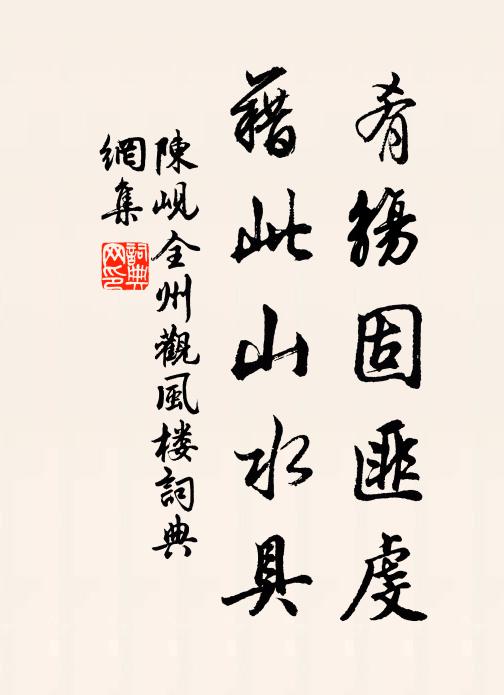 肴觴固匪虔
藉此山水具
陳峴全州觀風楼詞典
網集
詞典
网印